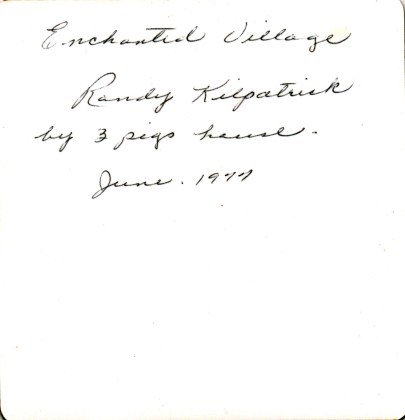 Enchanted Village
Randy Kilpatrick
by 3 pigs house.
June. 1977